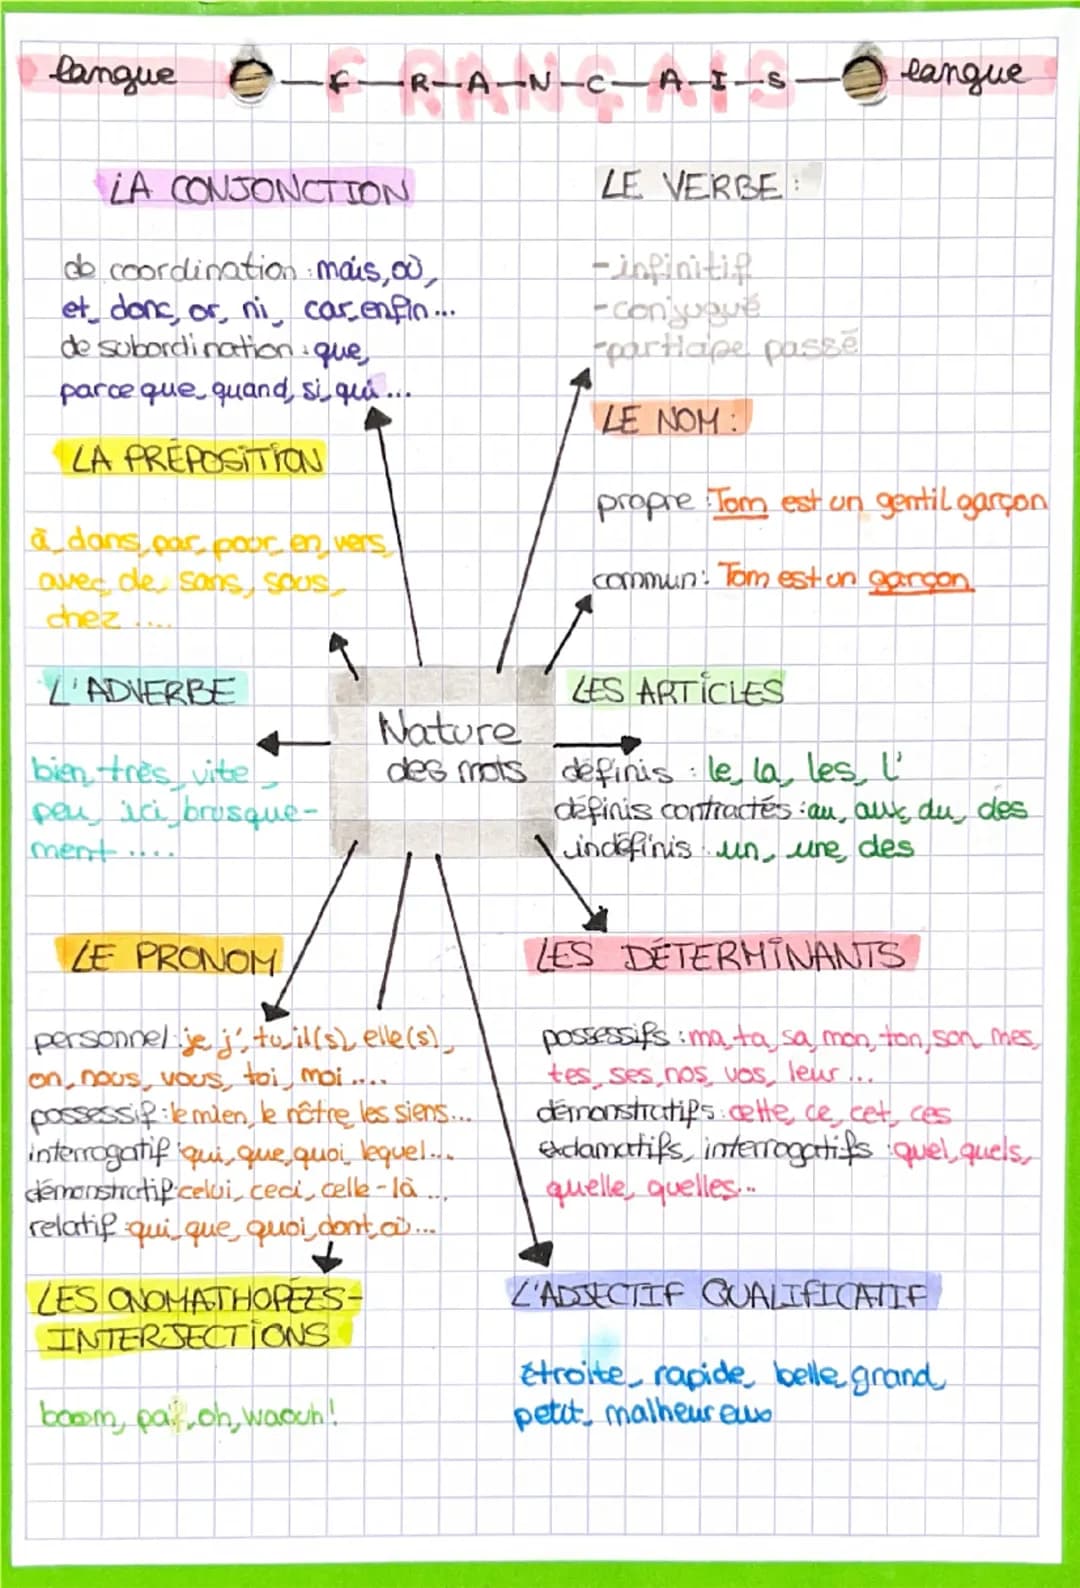 langue F-R-A-N-C-A-I-S langue
LA CONJONCTION
de coordination : mais, où,
et, donc, or, ni, car, enfin...
de subordination : que,
parce que, quand, si, qui...
LA PRÉPOSITION
à, dans, par, pour, en, vers,
avec, de, sans, sous,
chez ....
L'ADVERBE
bien, très, vite,
peu, ici, brusque-
ment ....
LE PRONOM
personnel : je, j', tu, il(s), elle(s),
on, nous, vous, toi, moi ....
possessif : le mien, le nôtre, les siens...
interrogatif : qui, que, quoi, lequel...
démonstratif : celui, ceci, celle-là ...
relatif : qui, que, quoi, dont, où...
LES ONOMATHOPÉES-
INTERJECTIONS
boom, paf, oh, waouh!
Nature
des mots
LE VERBE :
-infinitif
-conjugué
-participe passé
LE NOM :
propre : Tom est un gentil garçon
commun : Tom est un garçon
LES ARTICLES
définis : le, la, les, l'
définis contractés : au, aux, du, des
indéfinis : un, une, des
LES DÉTERMINANTS
possessifs : ma, ta, sa, mon, ton, son, mes,
tes, ses, nos, vos, leur ...
démonstratifs : cette, ce, cet, ces
exclamatifs, interrogatifs : quel, quels,
quelle, quelles...
L'ADJECTIF QUALIFICATIF
étroite, rapide, belle, grand,
petit, malheureux